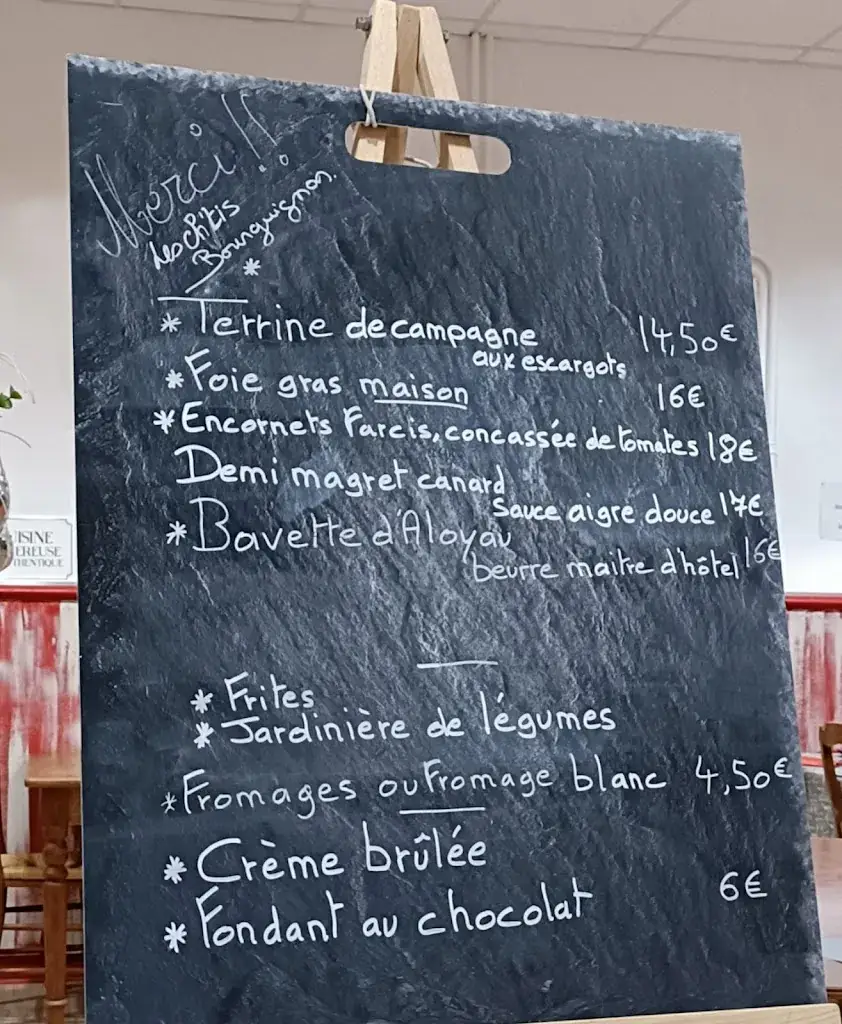 Merci!!
Les Ch'tis
Bourguignon.
*
* Terrine de campagne 14,50€
aux escargots
* Foie gras maison 16€
* Encornets Farcis, concassée de tomates 18€
Demi magret canard
Sauce aigre douce 17€
* Bavette d'Aloyau
beurre maitre d'hôtel 16€
* Frites
* Jardinière de légumes
* Fromages ou Fromage blanc 4,50€
* Crème brûlée
6€
* Fondant au chocolat
ISINE
EREUSE
THENTIQUE